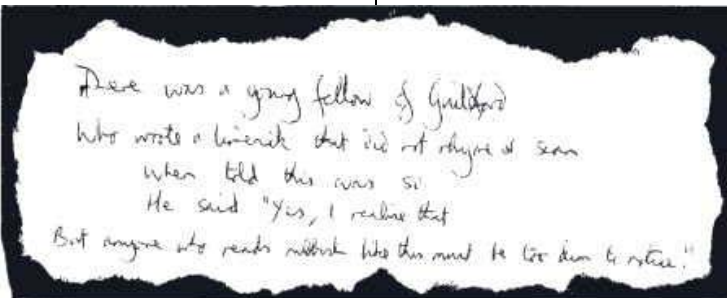 There was a young fellow of Guildford
Who wrote a limerick that did not rhyme or scan
When told this was so
He said "Yes, I realise that
But anyone who reads rubbish like this must be too dim to notice."